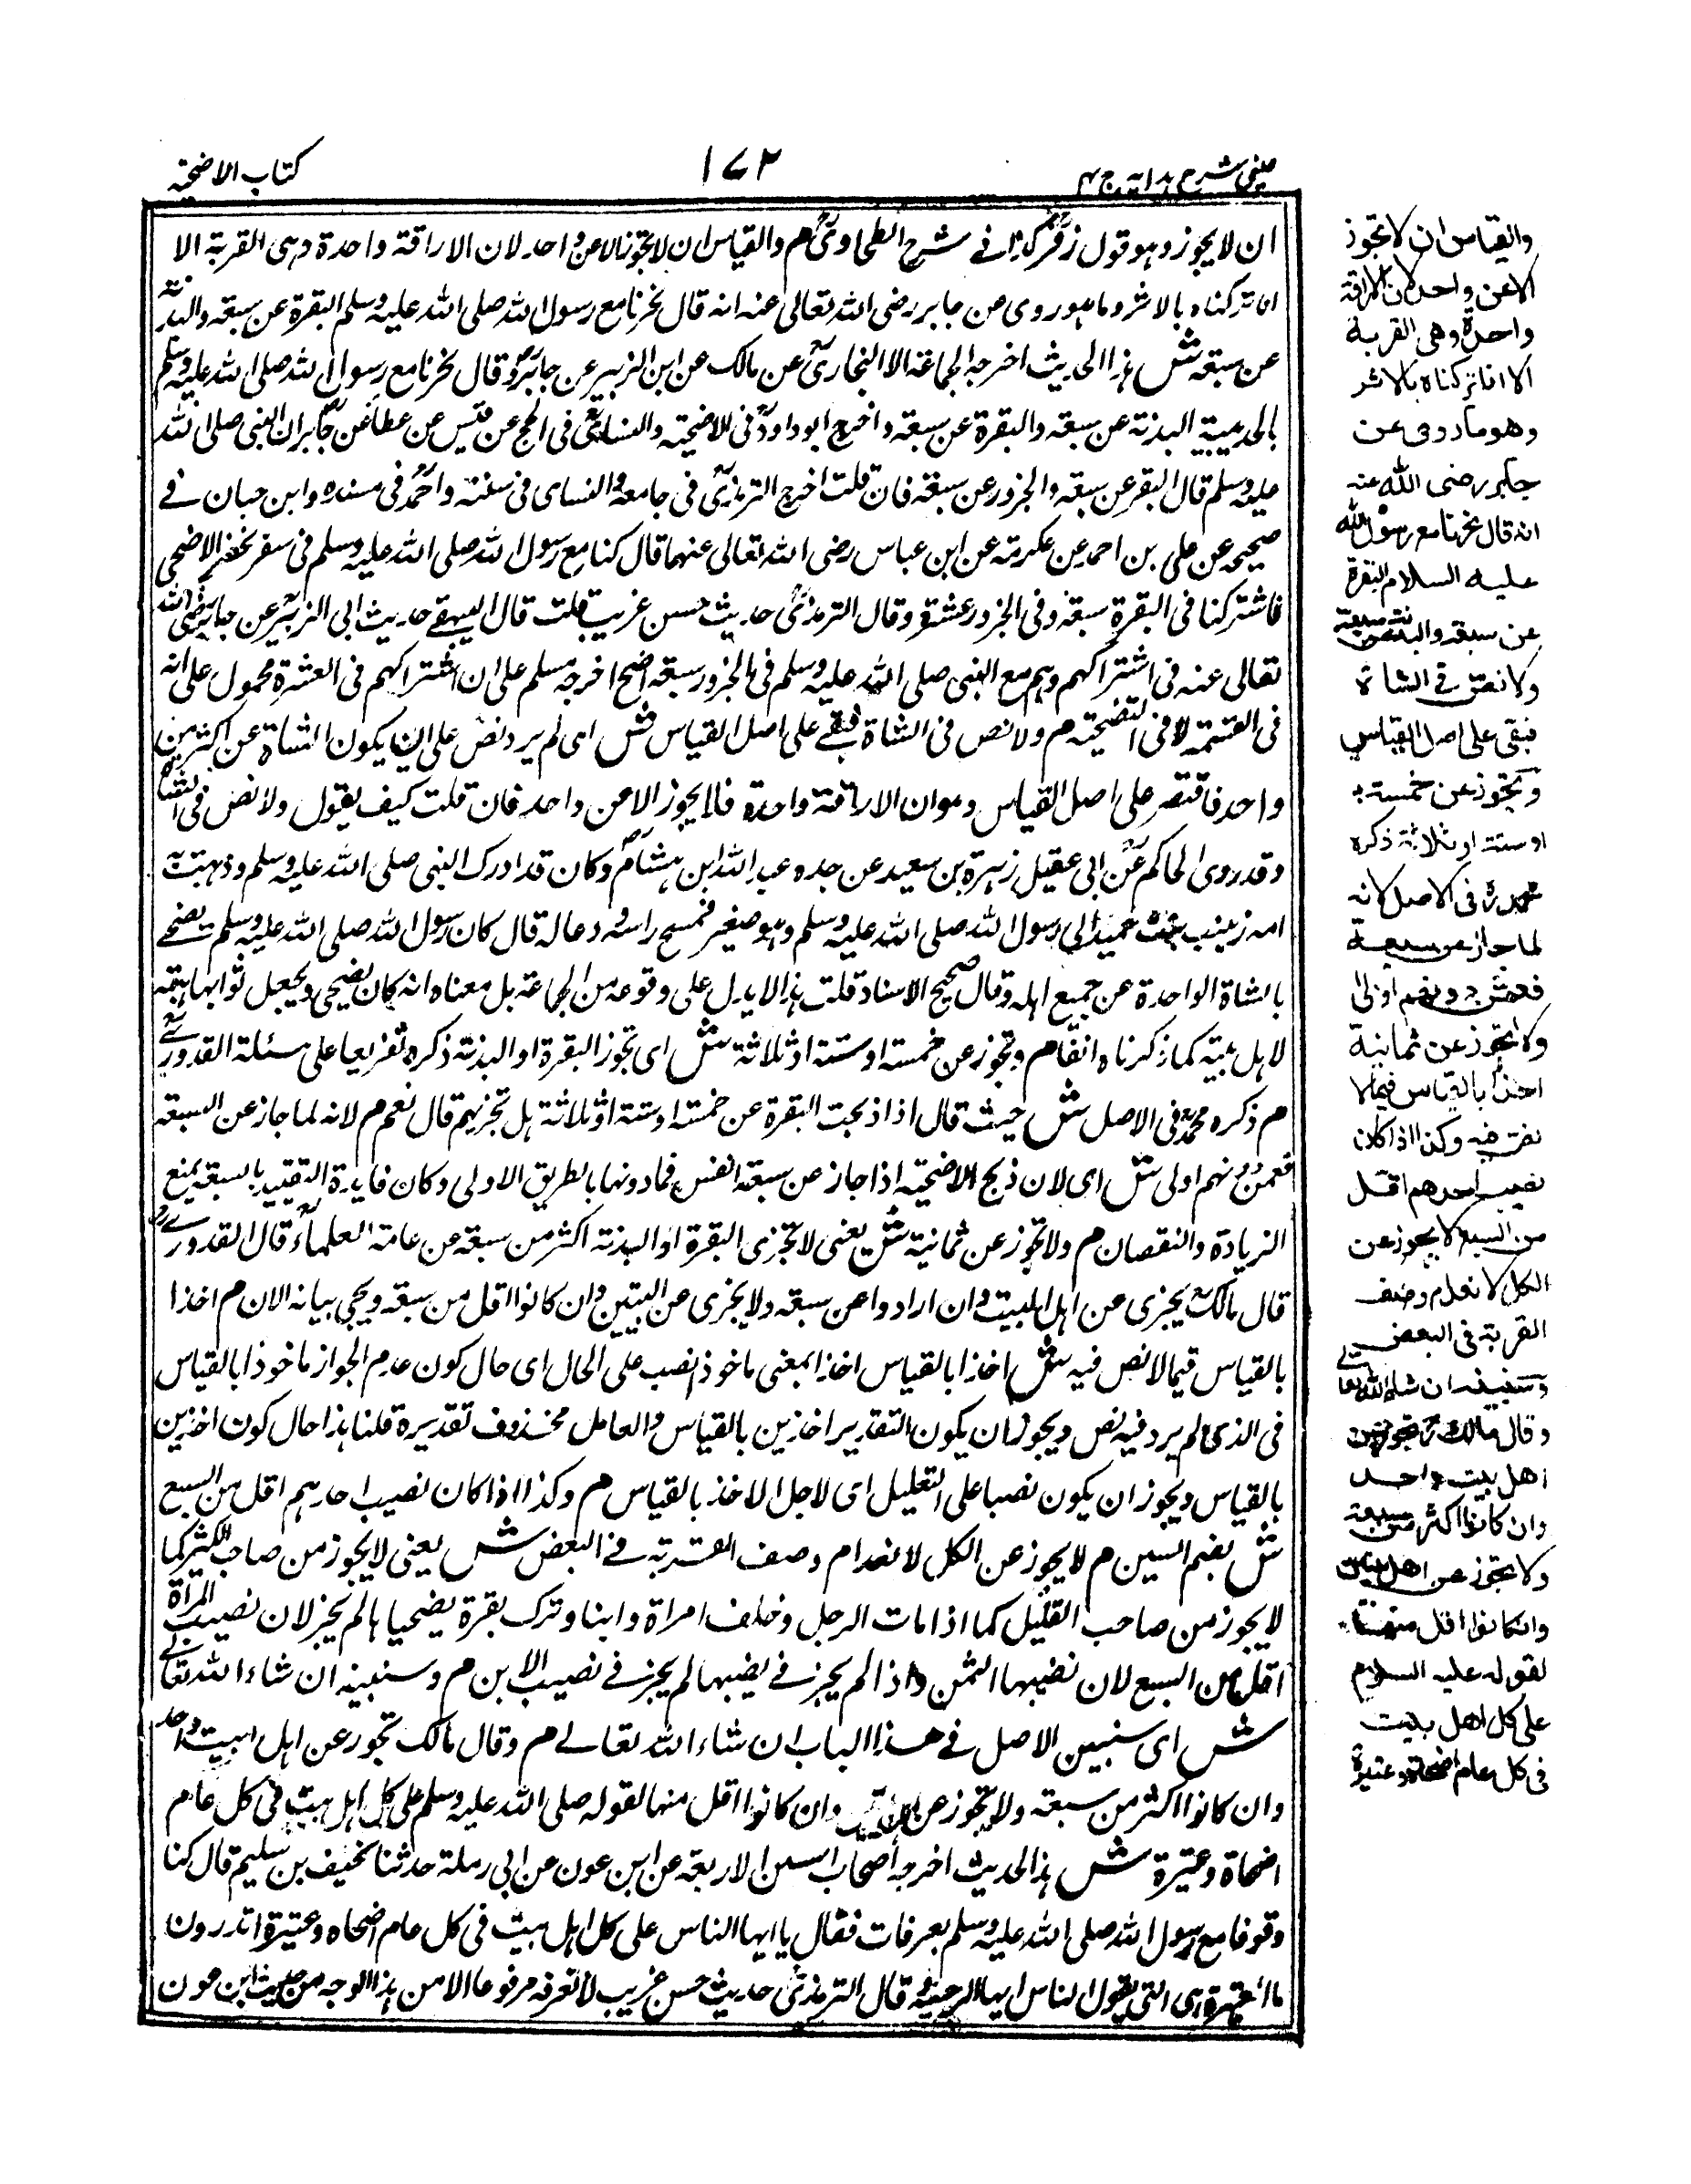 عینی شرح ہدایہ ج ۴
۱۷۲
کتاب الاضحیۃ
ان لا یجوز وہو قول زفر کذا فے شرح الطحاوی م والقیاس ان لا تجوز الا عن واحد لان الاراقۃ واحدۃ وہی القربۃ الا
انا ترکناہ بالاثر وما ہو روی عن جابر رضی اللہ تعالی عنہ انہ قال نحرنا مع رسول اللہ صلی اللہ علیہ وسلم البقرۃ عن سبعۃ والبدنۃ
عن سبعۃ ش ہذا الحدیث اخرجہ الجماعۃ الا البخاری عن مالک عن ابن الزبیر عن جابر قال نحرنا مع رسول اللہ صلی اللہ علیہ وسلم
بالحدیبیۃ البدنۃ عن سبعۃ والبقرۃ عن سبعۃ واخرج ابو داود فی الاضحیۃ والنسائی فی الحج عن قیس عن عطا عن جابر ان النبی صلی اللہ
علیہ وسلم قال البقر عن سبعۃ والجزور عن سبعۃ فان قلت اخرج الترمذی فی جامعہ والنسای فی سننہ واحمد فی مسندہ وابن حبان فے
صحیحہ عن علی بن احمد عن عکرمۃ عن ابن عباس رضی اللہ تعالی عنہما قال کنا مع رسول اللہ صلی اللہ علیہ وسلم فی سفر فحضر الاضحی
فاشترکنا فی البقرۃ سبعۃ وفی الجزور عشرۃ وقال الترمذی حدیث حسن غریب قلت قال البیہقے حدیث ابی الزبیر عن جابر رضی اللہ
تعالی عنہ فی اشتراکہم وہم مع النبی صلی اللہ علیہ وسلم فی الجزور سبعۃ اصح اخرجہ مسلم علی ان اشتراکہم فی العشرۃ محمول علی انہ
فی القسمۃ لا فی التضحیۃ م ولا نص فی الشاۃ فبقے علی اصل القیاس ش ای لم یرد نص علی ان یکون الشاۃ عن اکثر من
واحد فاقتصر علی اصل القیاس وہو ان الاراقۃ واحدۃ فلا یجوز الا عن واحد فان قلت کیف یقول ولا نص فی الشاۃ
وقد روی الحاکم عن ابی عقیل زہرۃ بن سعید عن جدہ عبد اللہ ابن ہشام وکان قد ادرک النبی صلی اللہ علیہ وسلم وذہبت بہ
امہ زینب بنت حمید الی رسول اللہ صلی اللہ علیہ وسلم وہو صغیر فمسح راسہ ودعا لہ قال کان رسول اللہ صلی اللہ علیہ وسلم یضحے
بالشاۃ الواحدۃ عن جمیع اہلہ وقال صحیح الاسناد قلت ہذا لا یدل علی وقوعہ من الجماعۃ بل معناہ انہ کان یضحی ویجعل ثوابہا ہبۃ
لاہل بیتہ کما ذکرناہ انفا م وتجوز عن خمسۃ او ستۃ او ثلاثۃ ش ای تجوز البقرۃ او البدنۃ ذکرہ تفریعا علی مسئلۃ القدورے
م ذکرہ محمد فی الاصل ش حیث قال اذا ذبحت البقرۃ عن خمسۃ او ستۃ او ثلاثۃ ہل تجزیہم قال نعم م لانہ لما جاز عن السبعۃ
فعمن دونہم اولی ش ای لان ذبح الاضحیۃ اذا جاز عن سبعۃ انفس فما دونہا بالطریق الاولی وکان فایدۃ التقیید بالسبعۃ یمنع
الزیادۃ والنقصان م ولا تجوز عن ثمانیۃ ش یعنی لا تجزی البقرۃ او البدنۃ اکثر من سبعۃ عن عامۃ العلماء قال القدورے
قال مالک یجزی عن اہل البیت وان ارادوا عن سبعۃ ولا یجزی عن البیتین وان کانوا اقل من سبعۃ ویجی بیانہ الان م اخذا
بالقیاس فیما لا نص فیہ ش اخذا بالقیاس اخذا بمعنی ماخوذ نصب علی الحال ای حال کون عدم الجواز ماخوذا بالقیاس
فی الذی لم یرد فیہ نص ویجوز ان یکون التقدیر اخذین بالقیاس والعامل محذوف تقدیرہ قلنا ہذا حال کون اخذین
بالقیاس ویجوز ان یکون نصبا علی التعلیل ای لاجل الاخذ بالقیاس م وکذا اذا کان نصیب احدہم اقل من السبع
ش بضم السین م لا یجوز عن الکل لانعدام وصف القربۃ فے البعض ش یعنی لا یجوز من صاحب الکثیر کما
لا یجوز من صاحب القلیل کما اذا مات الرجل وخلف امراۃ وابنا وترک بقرۃ یضحیا بہا لم یجز لان نصیب المراۃ
اقل من السبع لان نصیبہا الثمن واذا لم یجز فے نصیبہا لم یجز فے نصیب الابن م وسنبینہ ان شاء اللہ تعالے
ش ای سنبین الاصل فے ہذا الباب ان شاء اللہ تعالے م وقال مالک تجوز عن اہل البیت واحد
وان کانوا اکثر من سبعۃ ولا تجوز عن اہل بیتین وان کانوا اقل منہا لقولہ صلی اللہ علیہ وسلم علی کل اہل بیت فی کل عام
اضحاۃ وعتیرۃ ش ہذا الحدیث اخرجہ اصحاب السنن الاربعۃ عن ابن عون عن ابی رملۃ حدثنا مخنف بن سلیم قال کنا
وقوفا مع رسول اللہ صلی اللہ علیہ وسلم بعرفات فقال یا ایہا الناس علی کل اہل بیت فی کل عام اضحاہ وعتیرۃ اتدرون
ما العتیرۃ ہی التی یقول الناس انہا الرجبیۃ قال الترمذی حدیث حسن غریب لا نعرفہ مرفوعا الا من ہذا الوجہ من حدیث ابن عون
والقیاس ان لا تجوز
الا عن واحد لان الاراقۃ
واحدۃ وھی القربۃ
الا انا ترکناہ بالاثر
وھو ما روی عن
جابر رضی اللہ عنہ
انہ قال نحرنا مع رسول اللہ
علیہ السلام البقرۃ
عن سبعۃ والبدنۃ عن سبعۃ
ولا نص فی الشاۃ
فبقی علی اصل القیاس
وتجوز عن خمسۃ
او ستۃ او ثلاثۃ ذکرہ
محمد فی الاصل لانہ
لما جاز عن سبعۃ
فعمن دونھم اولی
ولا تجوز عن ثمانیۃ
اخذا بالقیاس فیما لا
نص فیہ وکذا اذا کان
نصیب احدھم اقل
من السبع لا یجوز عن
الکل لانعدام وصف
القربۃ فی البعض
وسنبینہ ان شاء اللہ تعالے
وقال مالک تجوز عن
اھل بیت واحد
وان کانوا اکثر من سبعۃ
ولا تجوز عن اھل بیتین
وان کانوا اقل منھا
لقولہ علیہ السلام
علی کل اھل بیت
فی کل عام اضحاۃ وعتیرۃ